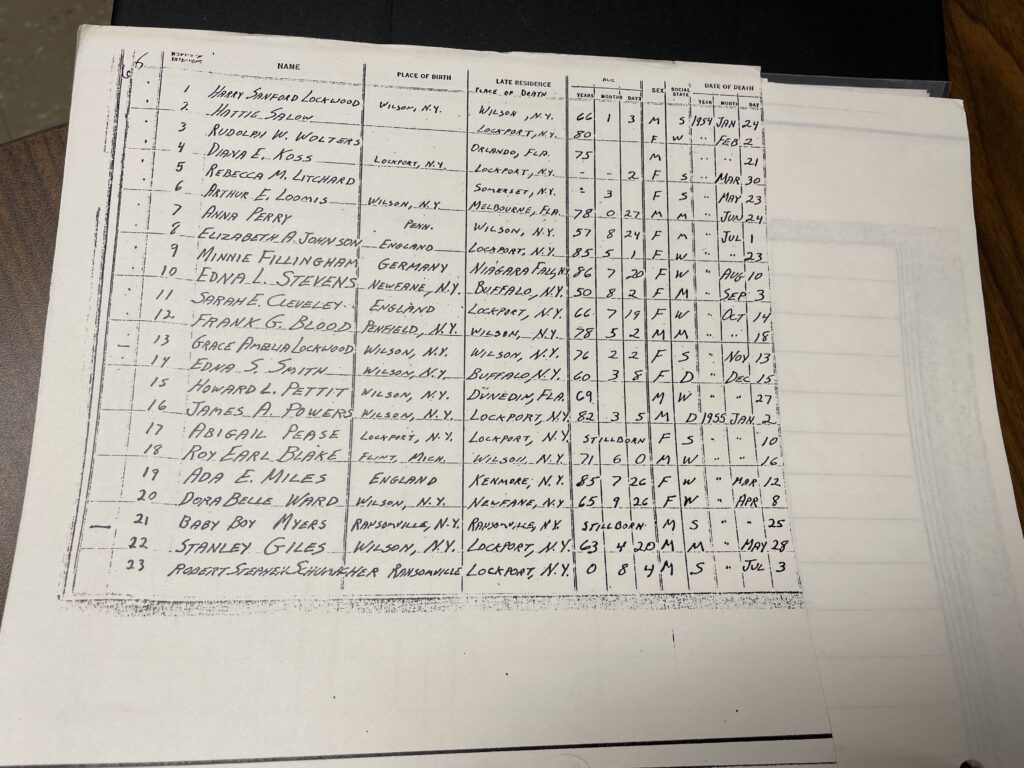 NAME PLACE OF BIRTH LATE RESIDENCE AGE SEX SOCIAL STATE DATE OF DEATH
PLACE OF DEATH YEARS MONTHS DAYS YEAR MONTH DAY
1 HARRY SANFORD LOCKWOOD WILSON, N.Y. WILSON, N.Y. 66 1 3 M S 1954 JAN 24
2 HATTIE SALOW LOCKPORT, N.Y. 80 F W " FEB 2
3 RUDOLPH W. WOLTERS ORLANDO, FLA. 75 M " " 21
4 DIANA E. KOSS LOCKPORT, N.Y. LOCKPORT, N.Y. - - 2 F S " MAR 30
5 REBECCA M. LITCHARD SOMERSET, N.Y. - 3 F S " MAY 23
6 ARTHUR E. LOOMIS WILSON, N.Y MELBOURNE, FLA. 78 0 27 M M " JUN 24
7 ANNA PERRY PENN. WILSON, N.Y. 57 8 24 F M " JUL 1
8 ELIZABETH A. JOHNSON ENGLAND LOCKPORT, N.Y. 85 5 1 F W " " 23
9 MINNIE FILLINGHAM GERMANY NIAGARA FALLS, NY 86 7 20 F W " AUG 10
10 EDNA L. STEVENS NEWFANE, N.Y. BUFFALO, N.Y. 50 8 2 F M " SEP 3
11 SARAH E. CLEVELEY ENGLAND LOCKPORT, N.Y. 66 7 19 F W " OCT 14
12 FRANK G. BLOOD PENFIELD, N.Y. WILSON, N.Y. 78 5 2 M M " " 18
13 GRACE AMELIA LOCKWOOD WILSON, N.Y. WILSON, N.Y. 76 2 2 F S " NOV 13
14 EDNA S. SMITH WILSON, N.Y. BUFFALO, N.Y. 60 3 8 F D " DEC 15
15 HOWARD L. PETTIT WILSON, N.Y. DUNEDIN, FLA. 69 M W " " 27
16 JAMES A. POWERS WILSON, N.Y. LOCKPORT, N.Y. 82 3 5 M D 1955 JAN 2
17 ABIGAIL PEASE LOCKPORT, N.Y. LOCKPORT, N.Y. STILLBORN F S " " 10
18 ROY EARL BLAKE FLINT, MICH. WILSON, N.Y. 71 6 0 M W " " 16
19 ADA E. MILES ENGLAND KENMORE, N.Y. 85 7 26 F W " MAR 12
20 DORA BELLE WARD WILSON, N.Y. NEWFANE, N.Y. 65 9 26 F W " APR 8
21 BABY BOY MYERS RANSOMVILLE, N.Y. RANSOMVILLE, N.Y. STILLBORN M S " " 25
22 STANLEY GILES WILSON, N.Y. LOCKPORT, N.Y. 63 4 20 M M " MAY 28
23 ROBERT STEPHEN SCHUMACHER RANSOMVILLE LOCKPORT, N.Y. 0 8 4 M S " JUL 3